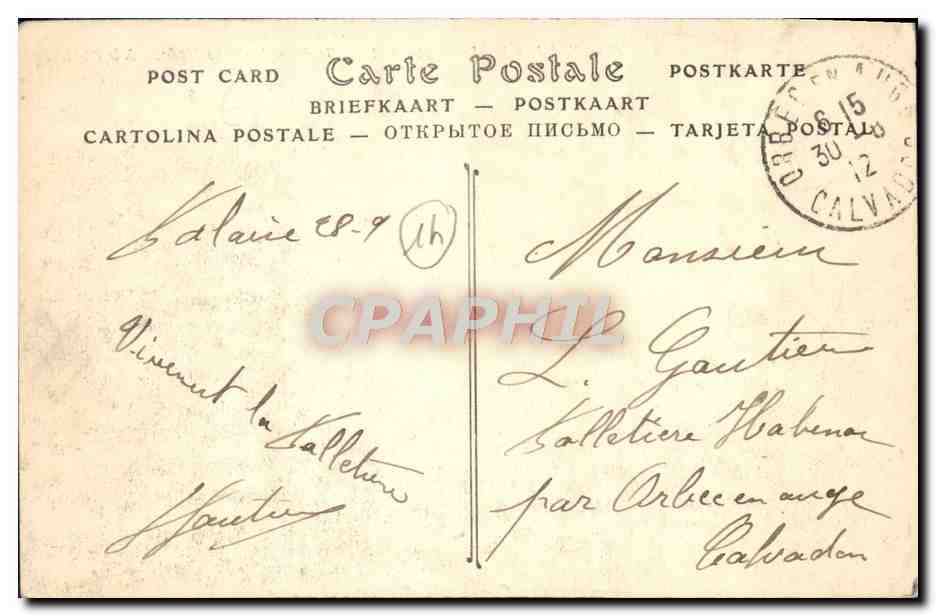 POST CARD Carte Postale POSTKARTE
BRIEFKAART — POSTKAART
CARTOLINA POSTALE — ОТКРЫТОЕ ПИСЬМО — TARJETA POSTAL
ORBEC EN AUGE
6 15
30
12
CALVADOS
28-9
14
Monsieur
CPAPHIL
L. Gautier
Vivement la Valletiere
Valletiere
par Orbec en auge
Gautier
Calvados